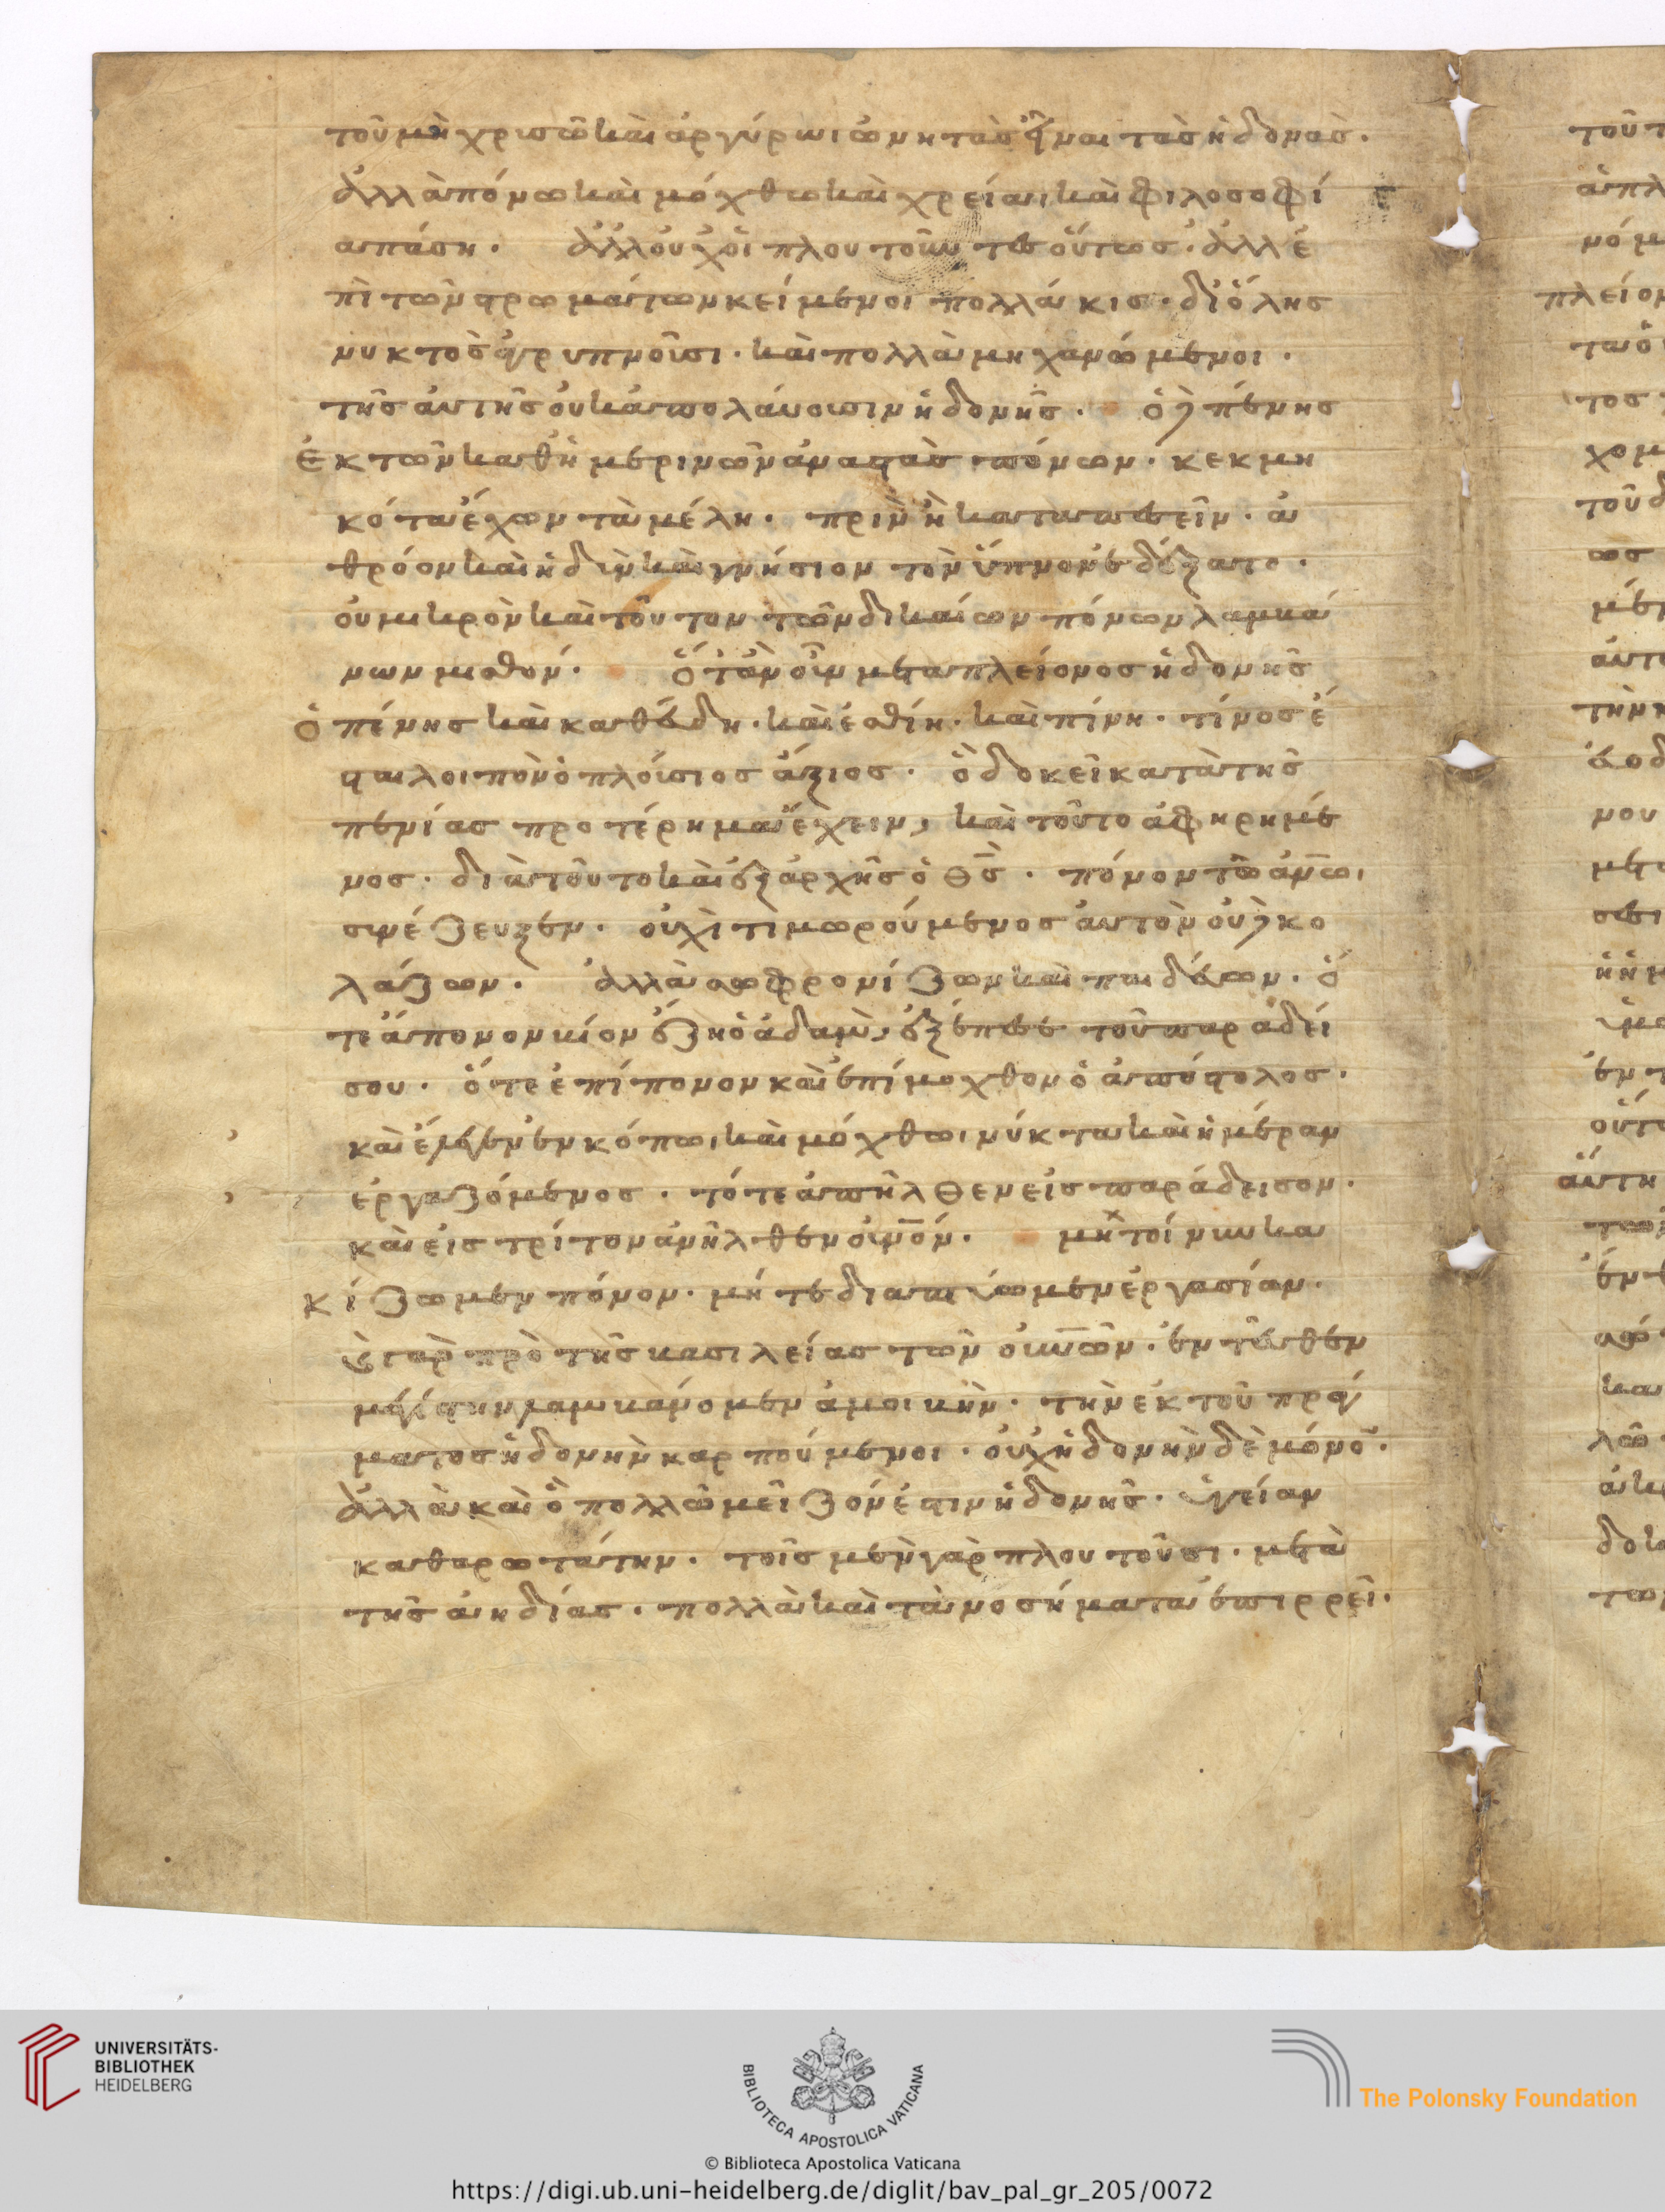 τοῦ μὴ χρυσῶ καὶ ἀργύρωι ὠνητὰς εἶναι τὰς ἡδονὰς.
ἀλλὰ πόνω καὶ μόχθω καὶ χρείαι καὶ φιλοσοφί
α πάση. ἀλλ οὐχ οἱ πλουτοῦντες οὕτως. ἀλλ ἐ
πὶ τῶν στρωμάτων κείμενοι πολλάκις. δι ὅλης
νυκτὸς ἀγρυπνοῦσι. καὶ πολλὰ μηχανώμενοι.
τῆς αὐτῆς οὐκ ἀπολαύουσιν ἡδονῆς. ὁ δὲ πένης
ἐκ τῶν καθημερινῶν ἀναστὰς πόνων. κεκμη
κότα ἔχων τὰ μέλη. πρινὴ καταπεσεῖν. ἀ
θρόον καὶ ἡδὺν καὶ γνήσιον τὸν ὕπνον ἐδέξατο.
οὐ μικρὸν καὶ τοῦτον τῶν δικαίων πόνων λαμβά
νων μισθόν. ὅταν οὖν μετα πλείονος ἡδονῆς
ὁ πένης καὶ καθεύδη. καὶ ἐσθίη. καὶ πίνη. τίνος ἐ
σται λοιπὸν ὁ πλούσιος ἄξιος. ὃ δοκεῖ κατὰ τῆς
πενίας προτέρημα ἔχειν, καὶ τοῦτο ἀφηρημέ
νος. διὰ τοῦτο καὶ ἐξ ἀρχῆς ὁ θς. πόνον τῶ ἀνωι
συνέζευξεν. οὐχὶ τιμωρούμενος αὐτὸν οὐδὲ κο
λάζων. ἀλλὰ σωφρονίζων καὶ παιδεύων. ὅ
τε ἄπονον βίον ἔζη ὁ ἀδαμ, ἐξέπεσε τοῦ παραδεί
σου. ὅτε ἐπίπονον καὶ ἐπίμοχθον ὁ ἀπόστολος.
καὶ ἔλεγεν ἐν κόπωι καὶ μόχθωι νύκτα καὶ ἡμέραν
ἐργαζόμενος. τότε ἀπῆλθεν εἰς παράδεισον.
καὶ εἰς τρίτον ἀνῆλθεν οὐνόν. μὴ τοίνυν κα
κίζωμεν πόνον. μήτε διαπτύωμεν ἐργασίαν.
μεγίστην λαμβάνομεν ἀμοιβὴν. τὴν ἐκ τοῦ πρά
ματος ἡδονὴν καρπούμενοι. οὐχ ἡδονὴν δὲ μόνο.
ἀλλὰ καὶ ὃ πολλῶ μεῖζόν ἐστιν ἡδονῆς. ὑγείαν
καθαρωτάτην. τοῖς μὲν γὰρ πλουτοῦσι. μετὰ
τῆς ἀηδίας. πολλὰ καὶ τὰ νοσήματα ἐπιρρεῖ.
UNIVERSITÄTS-
BIBLIOTHEK
HEIDELBERG
BIBLIOTECA APOSTOLICA VATICANA
The Polonsky Foundation
© Biblioteca Apostolica Vaticana
https://digi.ub.uni-heidelberg.de/diglit/bav_pal_gr_205/0072